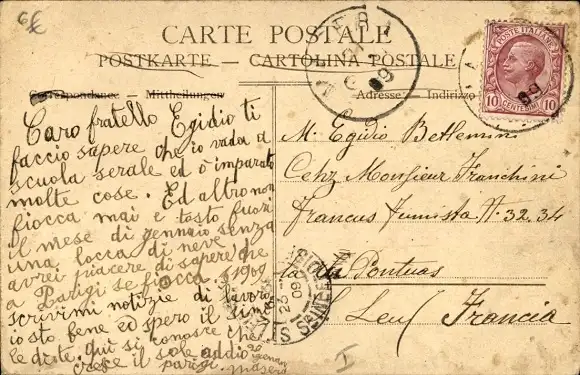 CARTE POSTALE
POSTKARTE — CARTOLINA POSTALE
Correspondance — Mittheilungen
Adresse — Indirizzo
POSTE ITALIANE
10 CENTESIMI 10
09
Caro fratello Egidio ti
faccio sapere che io vado a
scuola serale ed ò imparato
molte cose. Ed altro non
fiocca mai e tosto fuori
il mese di gennaio senza
una locca di neve
avrei piacere di sapere che
a Parigi se fiocca. 1909
scrivimi notizie di lavoro
io sto bene ed spero il simi
le di te. qui si conosce che
cresce il sole addio
parigi.
M. Egidio Betlemini
Cehz Monsieur Franchini
Francus Fumista N. 32.34
la Pontuas
Leuf Francia